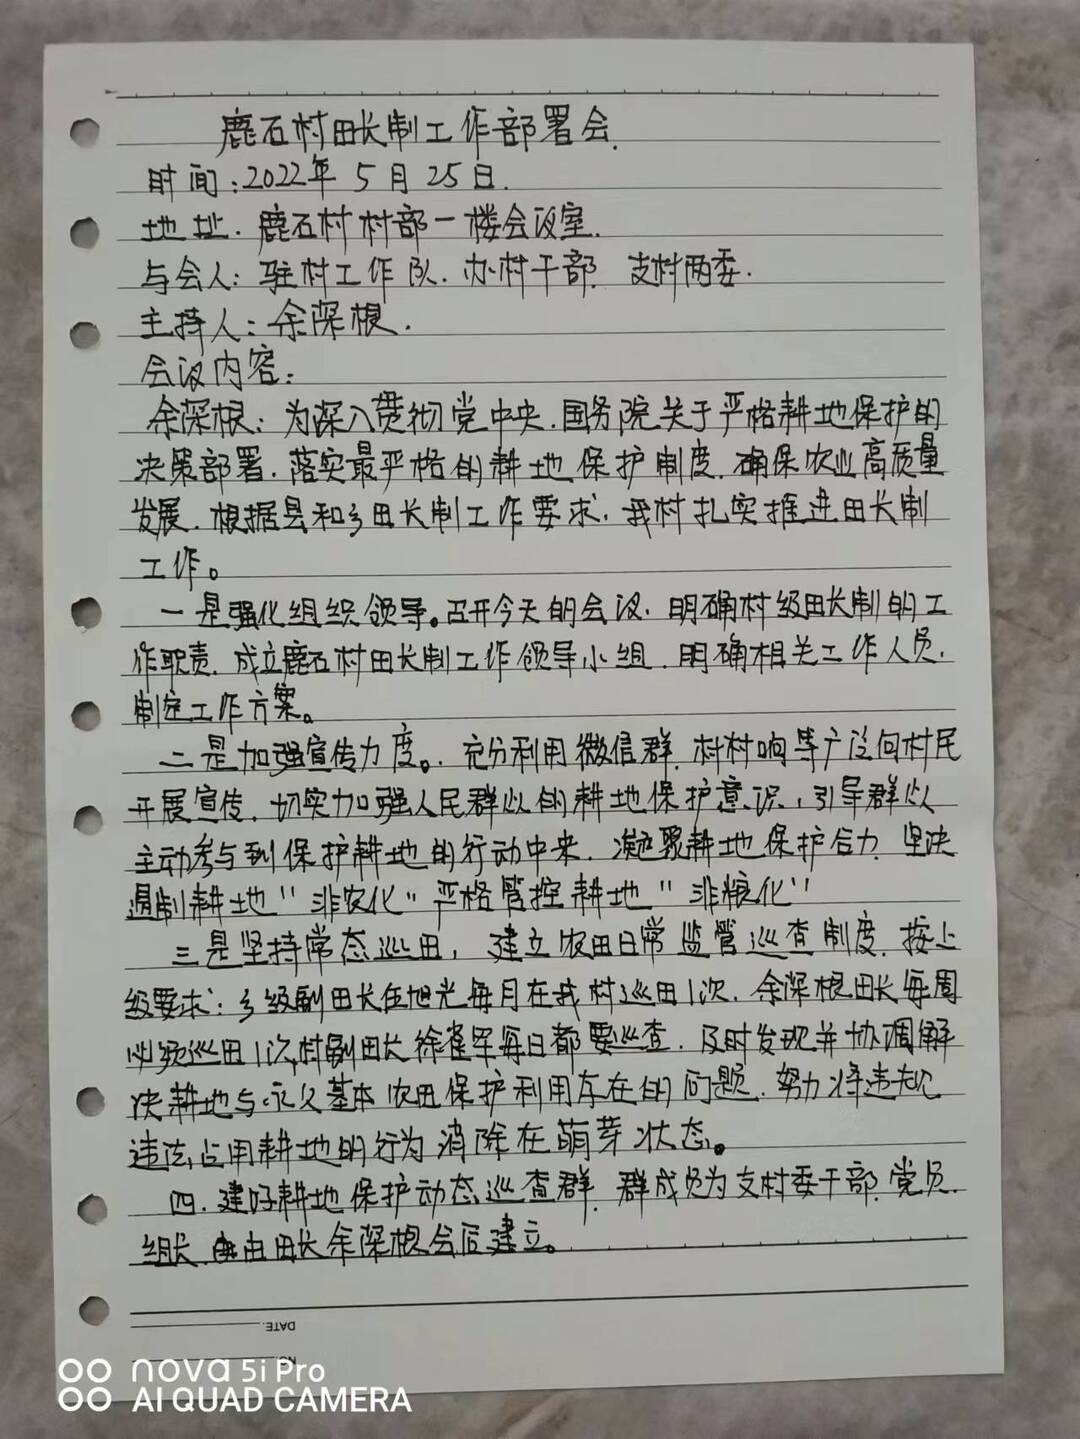 鹿石村田长制工作部署会.
时间:2022年5月25日.
地址.鹿石村村部一楼会议室.
与会人:驻村工作队.办村干部.支村两委.
主持人:余深根.
会议内容:
余深根:为深入贯彻党中央.国务院关于严格耕地保护的
决策部署.落实最严格的耕地保护制度.确保农业高质量
发展.根据县和乡田长制工作要求.我村扎实推进田长制
工作。
一是强化组织领导。召开今天的会议.明确村级田长制的工
作职责.成立鹿石村田长制工作领导小组.明确相关工作人员.
制定工作方案。
二是加强宣传力度。.充分利用微信群.村村响等广泛向村民
开展宣传.切实加强人民群众的耕地保护意识,引导群众
主动参与到保护耕地的行动中来.凝聚耕地保护合力.坚决
遏制耕地"非农化"严格管控耕地"非粮化"
三是坚持常态巡田,建立农田日常监管巡查制度.按上
级要求:乡级副田长伍旭光每月在我村巡田1次.余深根田长每周
必须巡田1次,村副田长徐 军每日都要巡查.及时发现并协调解
决耕地与永久基本农田保护利用存在的问题.努力将违规
违法占用耕地的行为消除在萌芽状态。
四.建好耕地保护动态巡查群.群成员为支村委干部.党员.
组长.由田长余深根会后建立。
DATE:
NO.
nova 5i Pro
AI QUAD CAMERA